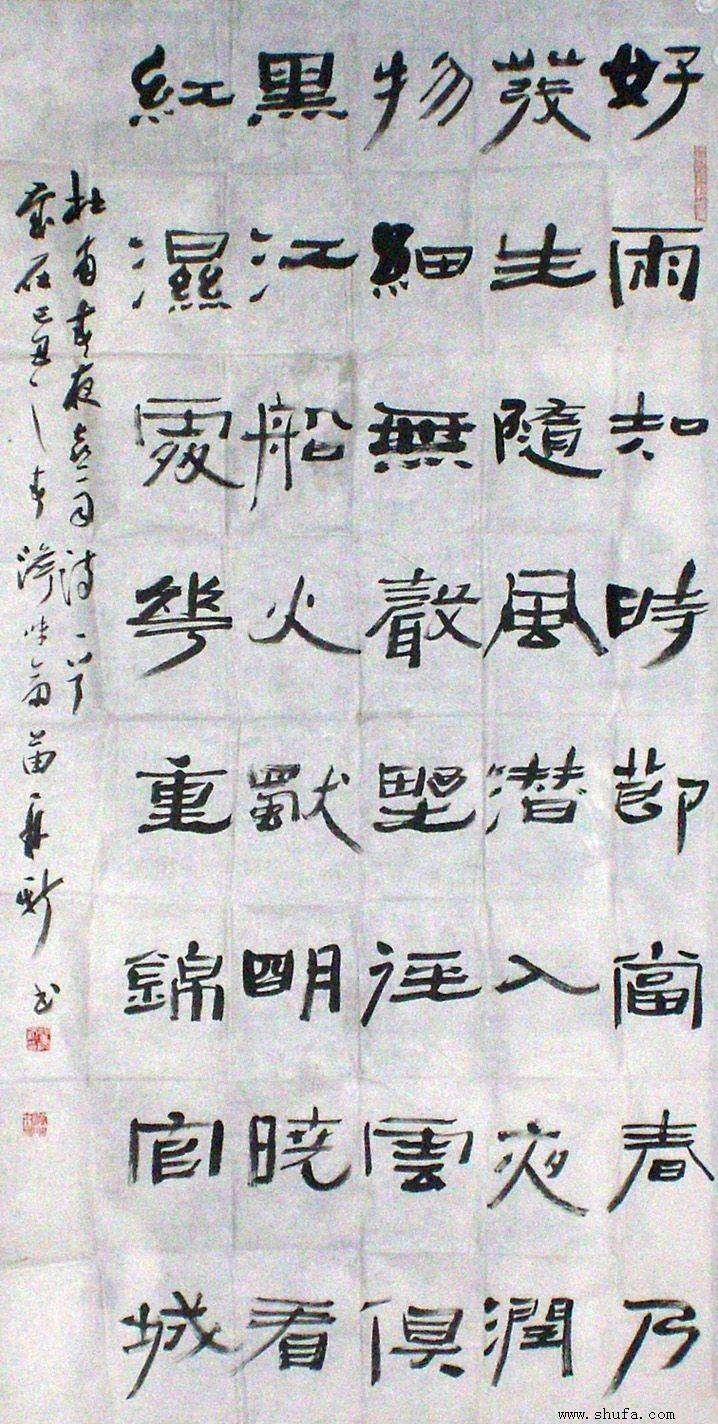 好雨知時節當春乃
發生隨風潛入夜潤
物細無聲野徑雲俱
黑江船火獨明曉看
紅濕處花重錦官城
杜甫春夜喜雨詩一首
歲在己丑之春 苗再新書
www.shufa.com